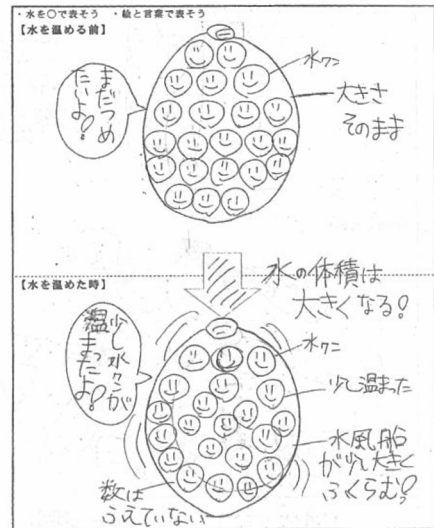 ・水を〇で表そう ・絵と言葉で表そう
【水を温める前】
まだつめ
たいよ!
水クン
大きさ
そのまま
水の体積は
大きくなる!
【水を温めた時】
少し水クンが
温まったよ!
水クン
少し温まった
水風船
が少し大きく
ふくらむ?
数は
ふえていない